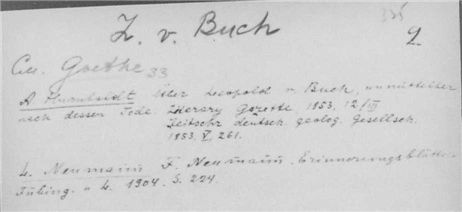 325
L. v. Buch
2
Goethe 33
A Humboldt Über Leopold v. Buch, unmittelbar
nach dessen Tode. Literary Gazette, 1853, 12/III
Zeitschr deutsch. geolog. Gesellsch.
1853. V, 261.
L. Neumann F. Neumann, Erinnerungsblätter
Tübing. u L. 1904. S. 224.